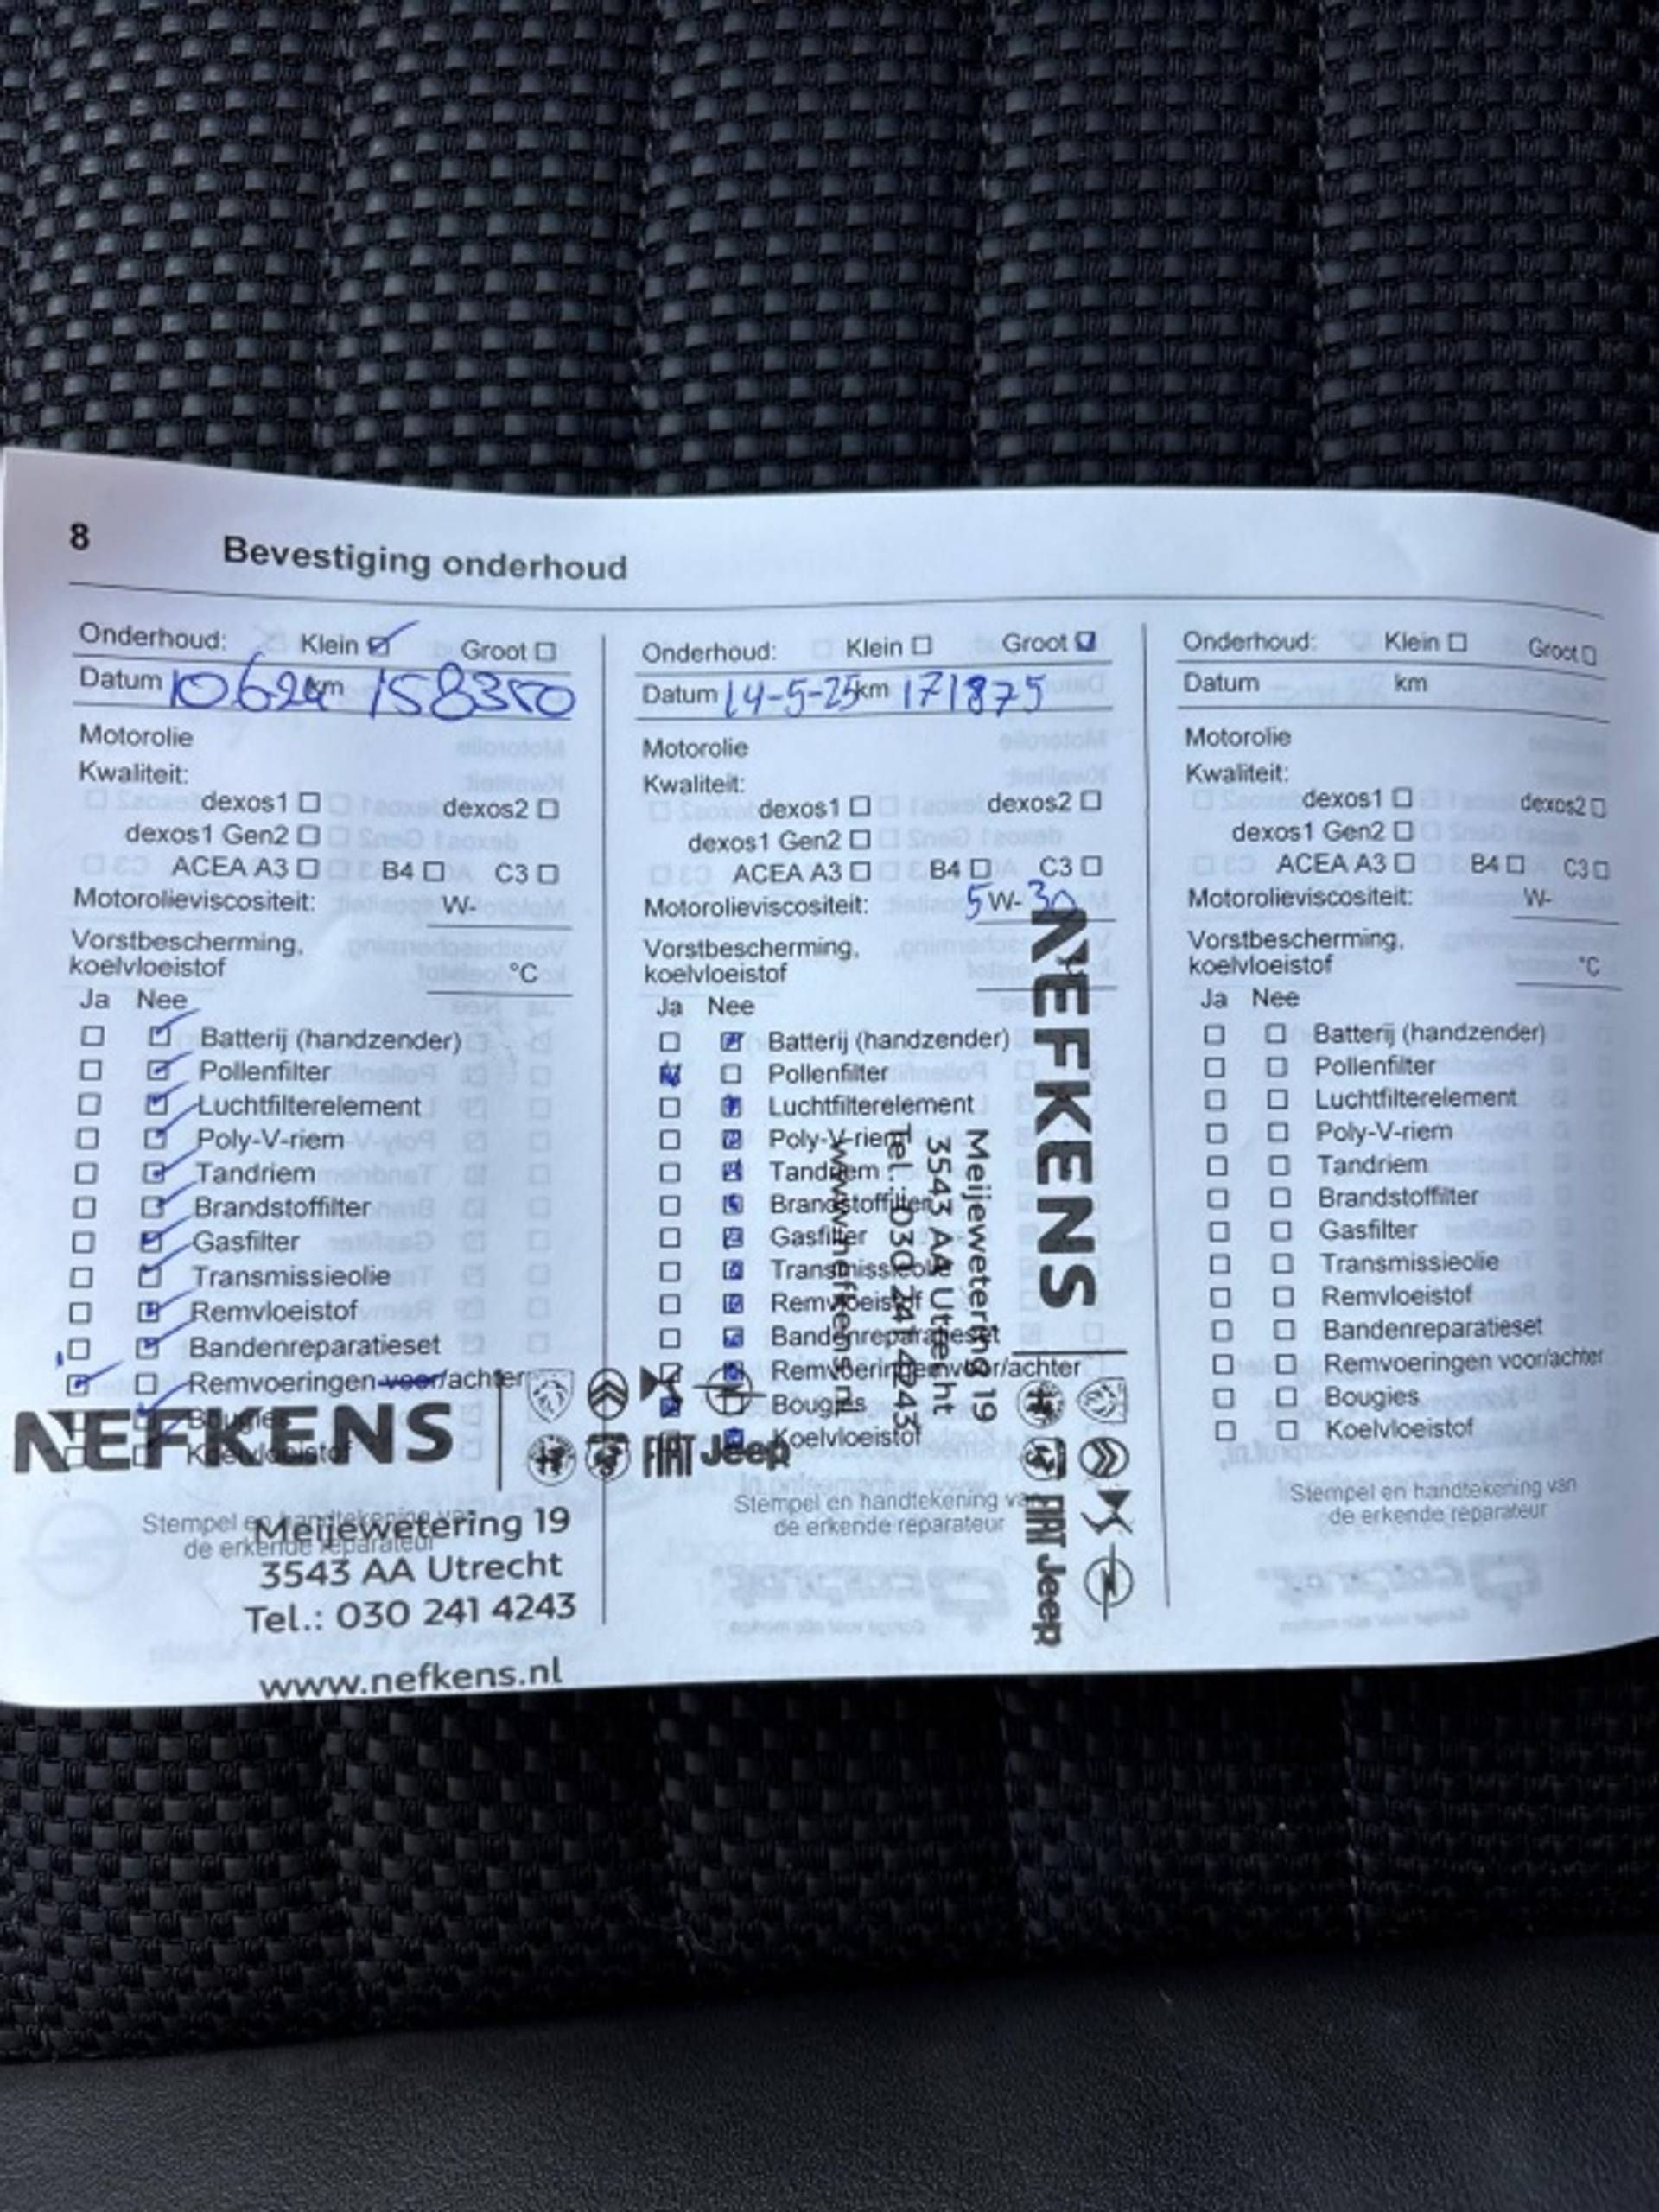 8 Bevestiging onderhoud
Onderhoud: Klein ☑ Groot ☐
Datum 10624 km 158350
Motorolie
Kwaliteit:
dexos1 ☐ dexos2 ☐
dexos1 Gen2 ☐
ACEA A3 ☐ B4 ☐ C3 ☐
Motorolieviscositeit: W-
Vorstbescherming,
koelvloeistof °C
Ja Nee
☐ ☑ Batterij (handzender)
☐ ☑ Pollenfilter
☐ ☑ Luchtfilterelement
☐ ☑ Poly-V-riem
☐ ☑ Tandriem
☐ ☑ Brandstoffilter
☐ ☑ Gasfilter
☐ ☑ Transmissieolie
☐ ☑ Remvloeistof
☐ ☑ Bandenreparatieset
☑ ☐ Remvoeringen voor/achter
☐ ☑ Bougies
☐ ☐ Koelvloeistof
Stempel en handtekening van
de erkende reparateur
NEFKENS
FIAT Jeep
Meijewetering 19
3543 AA Utrecht
Tel.: 030 241 4243
www.nefkens.nl
Onderhoud: Klein ☐ Groot ☑
Datum 14-5-25 km 171875
Motorolie
Kwaliteit:
dexos1 ☐ dexos2 ☐
dexos1 Gen2 ☐
ACEA A3 ☐ B4 ☐ C3 ☐
Motorolieviscositeit: 5 W- 30
Vorstbescherming,
koelvloeistof
Ja Nee
☐ ☑ Batterij (handzender)
☑ ☐ Pollenfilter
☐ ☑ Luchtfilterelement
☐ ☑ Poly-V-riem
☐ ☑ Tandriem
☐ ☑ Brandstoffilter
☐ ☑ Gasfilter
☐ ☑ Transmissieolie
☐ ☑ Remvloeistof
☐ ☑ Bandenreparatieset
☐ ☑ Remvoeringen voor/achter
☑ ☐ Bougies
☐ ☑ Koelvloeistof
Stempel en handtekening van
de erkende reparateur
NEFKENS
FIAT Jeep
Meijewetering 19
3543 AA Utrecht
Tel.: 030 241 4243
www.nefkens.nl
Onderhoud: Klein ☐ Groot ☐
Datum km
Motorolie
Kwaliteit:
dexos1 ☐ dexos2 ☐
dexos1 Gen2 ☐
ACEA A3 ☐ B4 ☐ C3 ☐
Motorolieviscositeit: W-
Vorstbescherming,
koelvloeistof °C
Ja Nee
☐ ☐ Batterij (handzender)
☐ ☐ Pollenfilter
☐ ☐ Luchtfilterelement
☐ ☐ Poly-V-riem
☐ ☐ Tandriem
☐ ☐ Brandstoffilter
☐ ☐ Gasfilter
☐ ☐ Transmissieolie
☐ ☐ Remvloeistof
☐ ☐ Bandenreparatieset
☐ ☐ Remvoeringen voor/achter
☐ ☐ Bougies
☐ ☐ Koelvloeistof
Stempel en handtekening van
de erkende reparateur